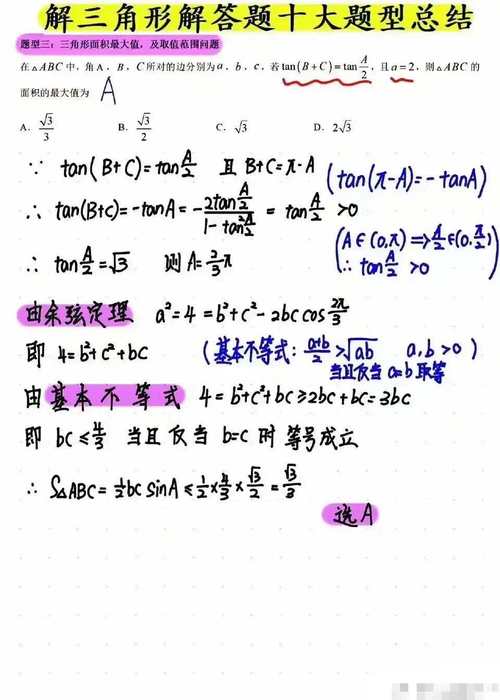 解三角形解答题十大题型总结
题型三：三角形面积最大值，及取值范围问题
在△ABC中，角A，B，C所对的边分别为a，b，c，若tan(B+C)=tan A/2，且a=2，则△ABC的
面积的最大值为 A
A. √3/3 B. √3/2 C. √3 D. 2√3
∵ tan(B+C)=tan A/2 且 B+C=π-A (tan(π-A)=-tanA)
∴ tan(B+C)=-tanA=-2tan A/2 / 1-tan² A/2 = tan A/2 >0
(A∈(0,π)⇒A/2∈(0,π/2)
∴ tan A/2 >0)
∴ tan A/2=√3 则 A=2/3π
由余弦定理 a²=4=b²+c²-2bc cos 2π/3
即 4=b²+c²+bc (基本不等式: a+b/2 ≥√ab a,b>0)
当且仅当 a=b 取等
由基本不等式 4=b²+c²+bc≥2bc+bc=3bc
即 bc≤4/3 当且仅当 b=c 时等号成立
∴ S△ABC=1/2bc sinA≤1/2×4/3×√3/2=√3/3
选A